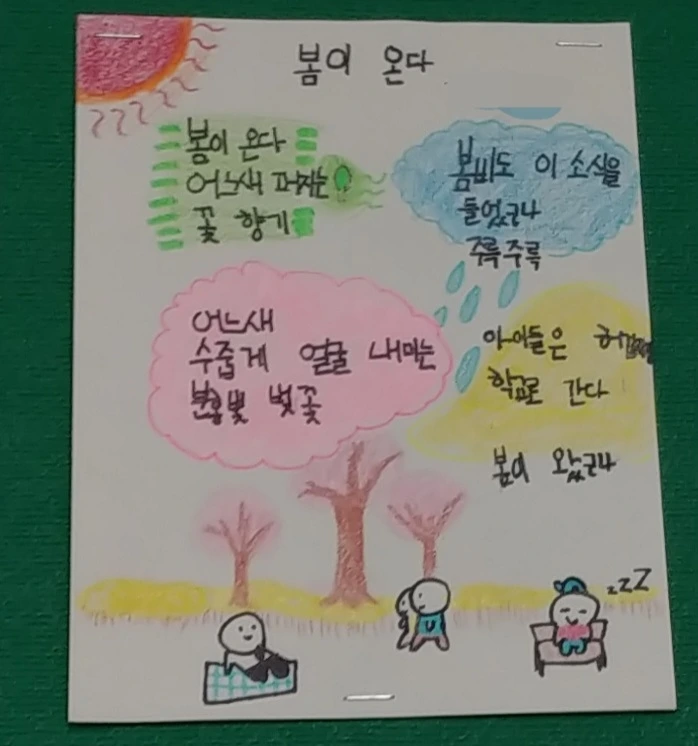 봄이 온다
봄이 온다
어느새 퍼지는
꽃 향기
봄비도 이 소식을
들었구나
주륵주륵
어느새
수줍게 얼굴 내미는
분홍빛 벚꽃
아이들은
학교로 간다
봄이 왔구나
zzZ